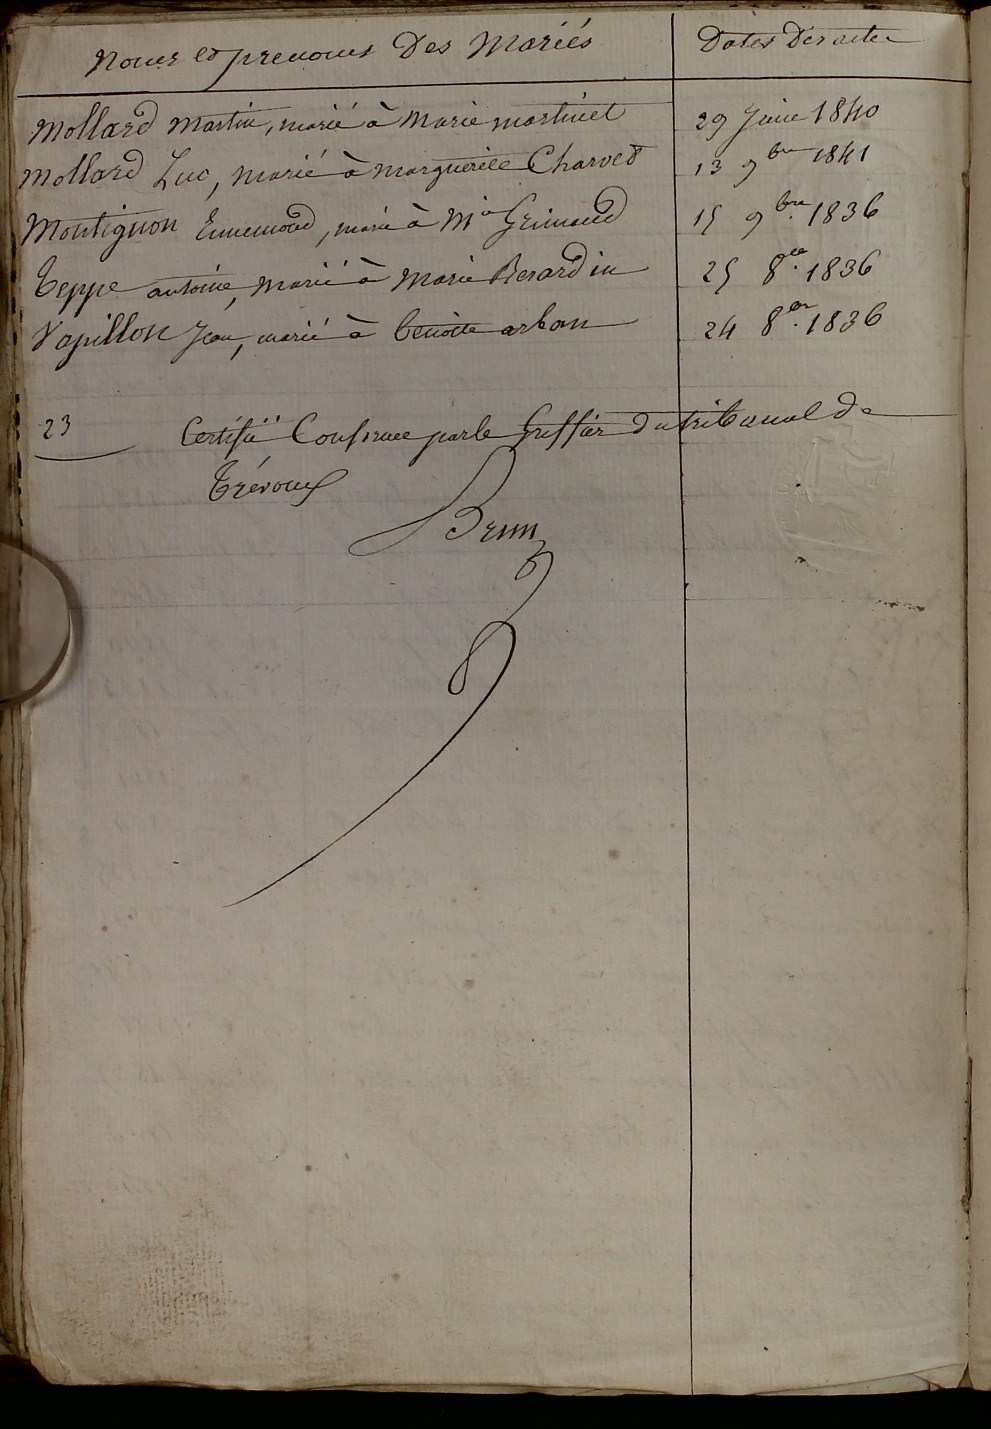 Noms et prenoms Des Mariés Dates Des actes
Mollard Martin, marié à Marie Martinet 29 Juin 1840
Mollard Luc, marié à Marguerite Charvet 13 9bre 1841
Montignon Ennemond, marié à Mie Grimaud 15 9bre 1836
Teppe antoine, marié à Marie Berardin 25 8bre 1836
Vapillon Jean, marié à benoite arban 24 8bre 1836
23 Certifié Conforme par le Greffier du tribunal de
Trévoux
Brun